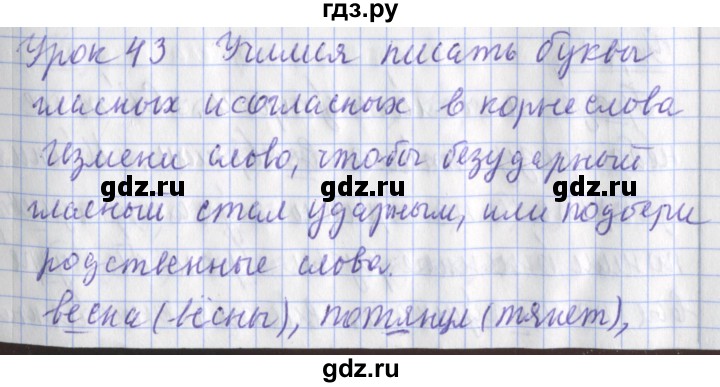 гдз.ру
Урок 43 Учимся писать буквы
гласных и согласных в корне слова
gdz.ru gdz.ru
Измени слово, чтобы безударный
gdz.ru gdz.ru
гласный стал ударным, или подбери
родственные слова.
gdz.ru gdz.ru
весна (вёсны), потянул (тянет),
gdz.ru